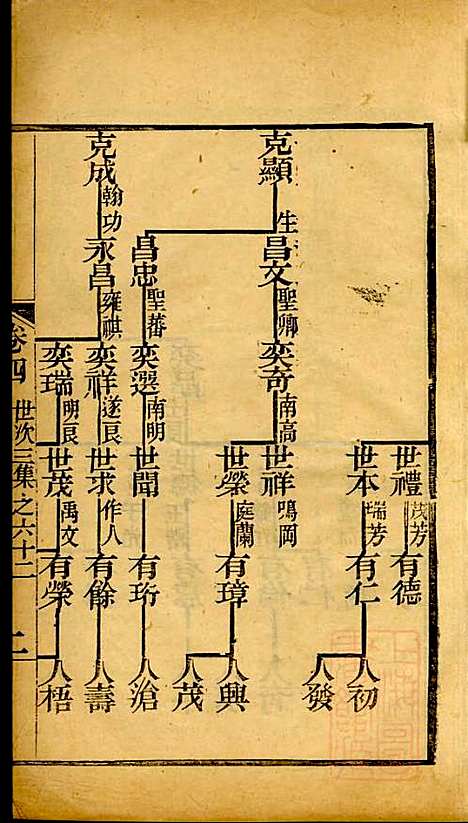 世禮茂芳
有德
世本瑞芳
有仁
人初
人發
克顯
生
昌文聖卿
奕奇南高
世祥鳴岡
世榮庭蘭
有璋
人興
人茂
昌忠聖蕃
奕選南明
世聞
有珩
人滄
克成翰功
永昌雍祺
奕祥遂良
世求作人
有餘
人壽
奕瑞明良
世茂禹文
有榮
人梧
卷四
世次三集之六十二